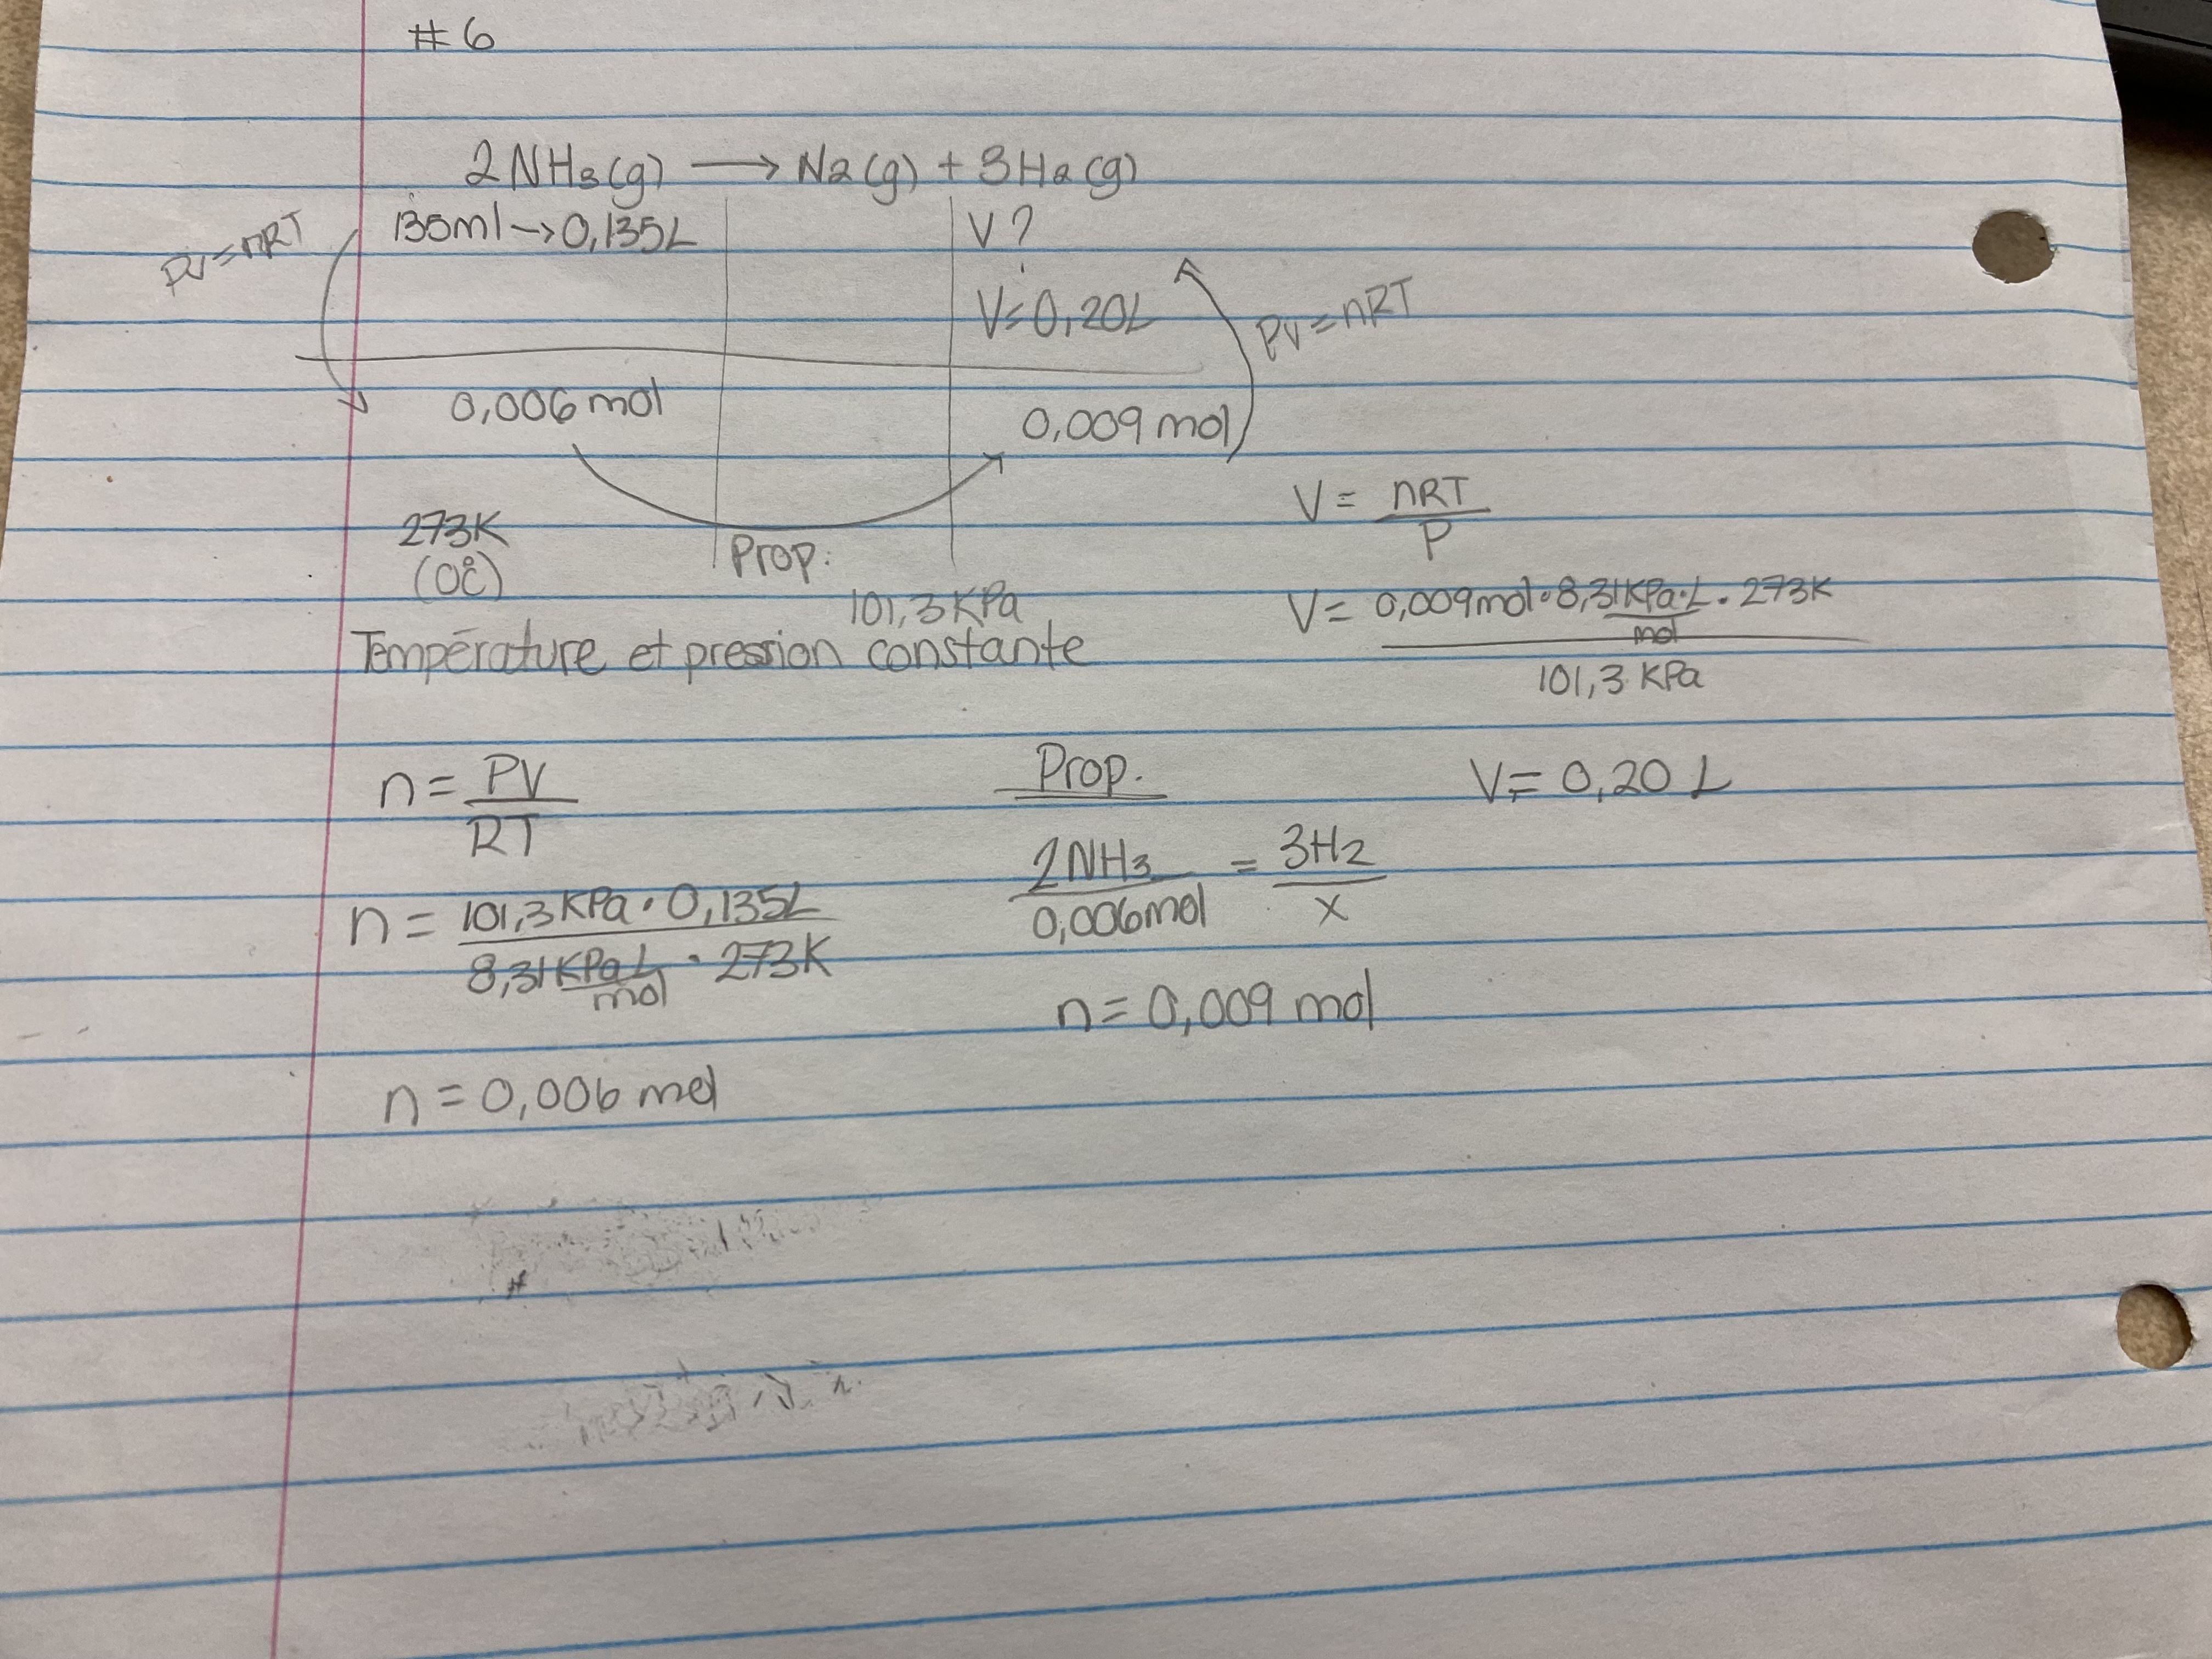 #6
2NH3(g) → N2(g) + 3H2(g)
PV=nRT
135ml→0,135L
V?
V=0,20L
PV=nRT
0,006mol
0,009mol
273K
(0°C)
Prop.
101,3KPa
Température et pression constante
V= nRT
P
V= 0,009mol·8,31KPa·L · 273K
mol
101,3 KPa
V= 0,20 L
n= PV
RT
n= 101,3KPa·0,135L
8,31KPaL · 273K
mol
n=0,006 mol
Prop.
2NH3 = 3H2
0,006mol x
n=0,009 mol